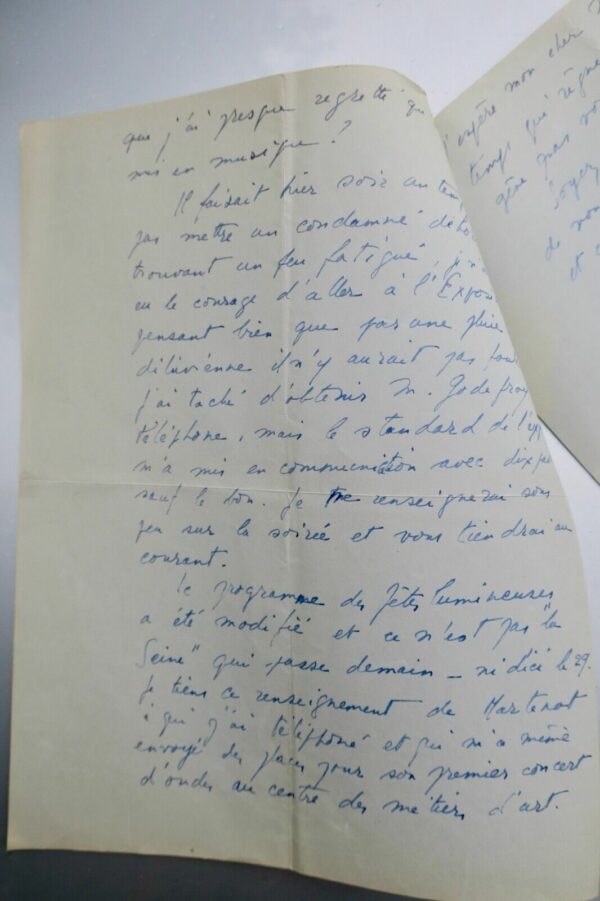 que j'ai presque regretté qu
mis en musique ?
Il faisait hier soir un tem
pas mettre un condamné deho
trouvant un peu fatigué, je n'
eu le courage d'aller à l'Expos
pensant bien que par une pluie
diluvienne il n'y aurait pas foul
j'ai taché d'obtenir M. Godefroy
téléphone, mais le standard de l'exp
m'a mis en communiction avec dix pe
sauf le bon. Je me renseignerai sous
peu sur la soirée et vous tiendrai au
courant.
Le programme des fêtes lumineuses
a été modifié et ce n'est pas "la
Seine" qui passe demain – ni d'ici le 29.
Je tiens ce renseignement de Martenot
à qui j'ai téléphoné et qui m'a même
envoyé des places pour son premier concert
d'ondes au centre des métiers d'art.
j'espère mon cher
temps qui règne
gêne pas
Soyez
de
et